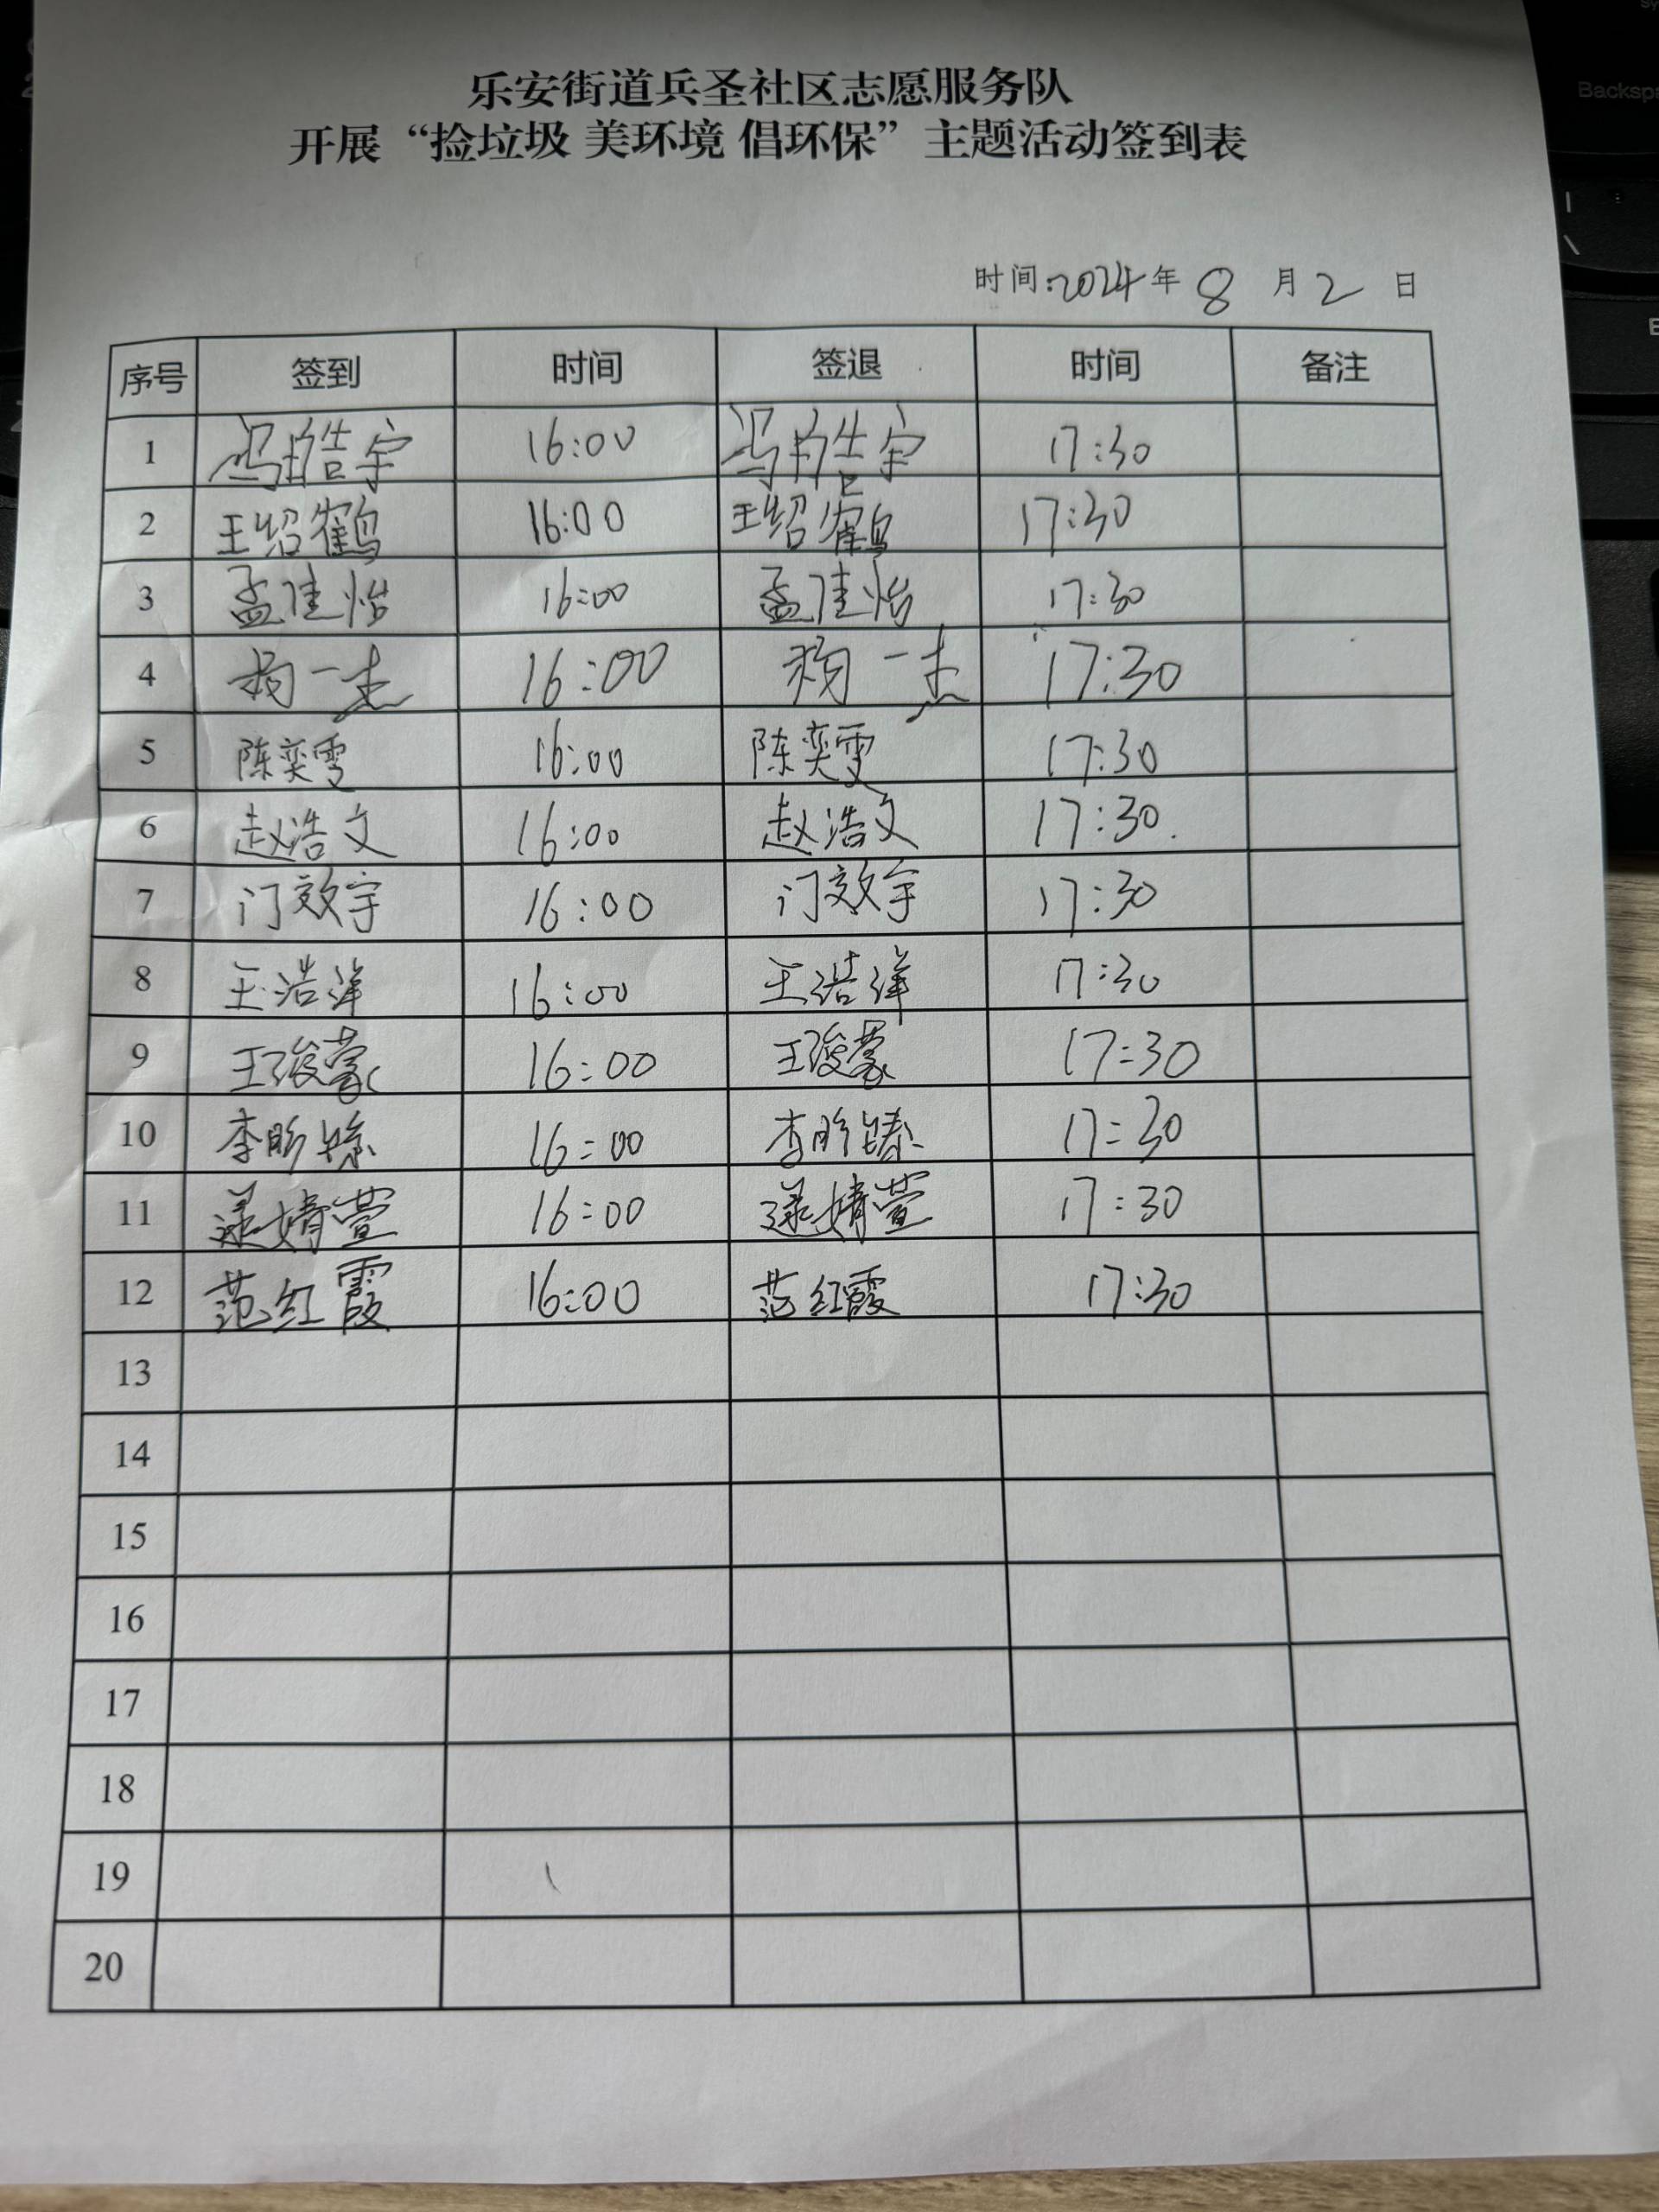 乐安街道兵圣社区志愿服务队
开展“捡垃圾 美环境 倡环保”主题活动签到表
时间:2024年 8 月 2 日
序号 签到 时间 签退 时间 备注
1 冯皓宇 16:00 冯皓宇 17:30
2 王绍鹤 16:00 王绍鹤 17:30
3 孟佳怡 16:00 孟佳怡 17:30
4 杨一杰 16:00 杨一杰 17:30
5 陈奕雯 16:00 陈奕雯 17:30
6 赵浩文 16:00 赵浩文 17:30
7 门效宇 16:00 门效宇 17:30
8 王浩洋 16:00 王浩洋 17:30
9 王浚蒙 16:00 王浚蒙 17:30
10 李昕 16:00 李昕 17:30
11 婧萱 16:00 婧萱 17:30
12 范红霞 16:00 范红霞 17:30
13
14
15
16
17
18
19
20